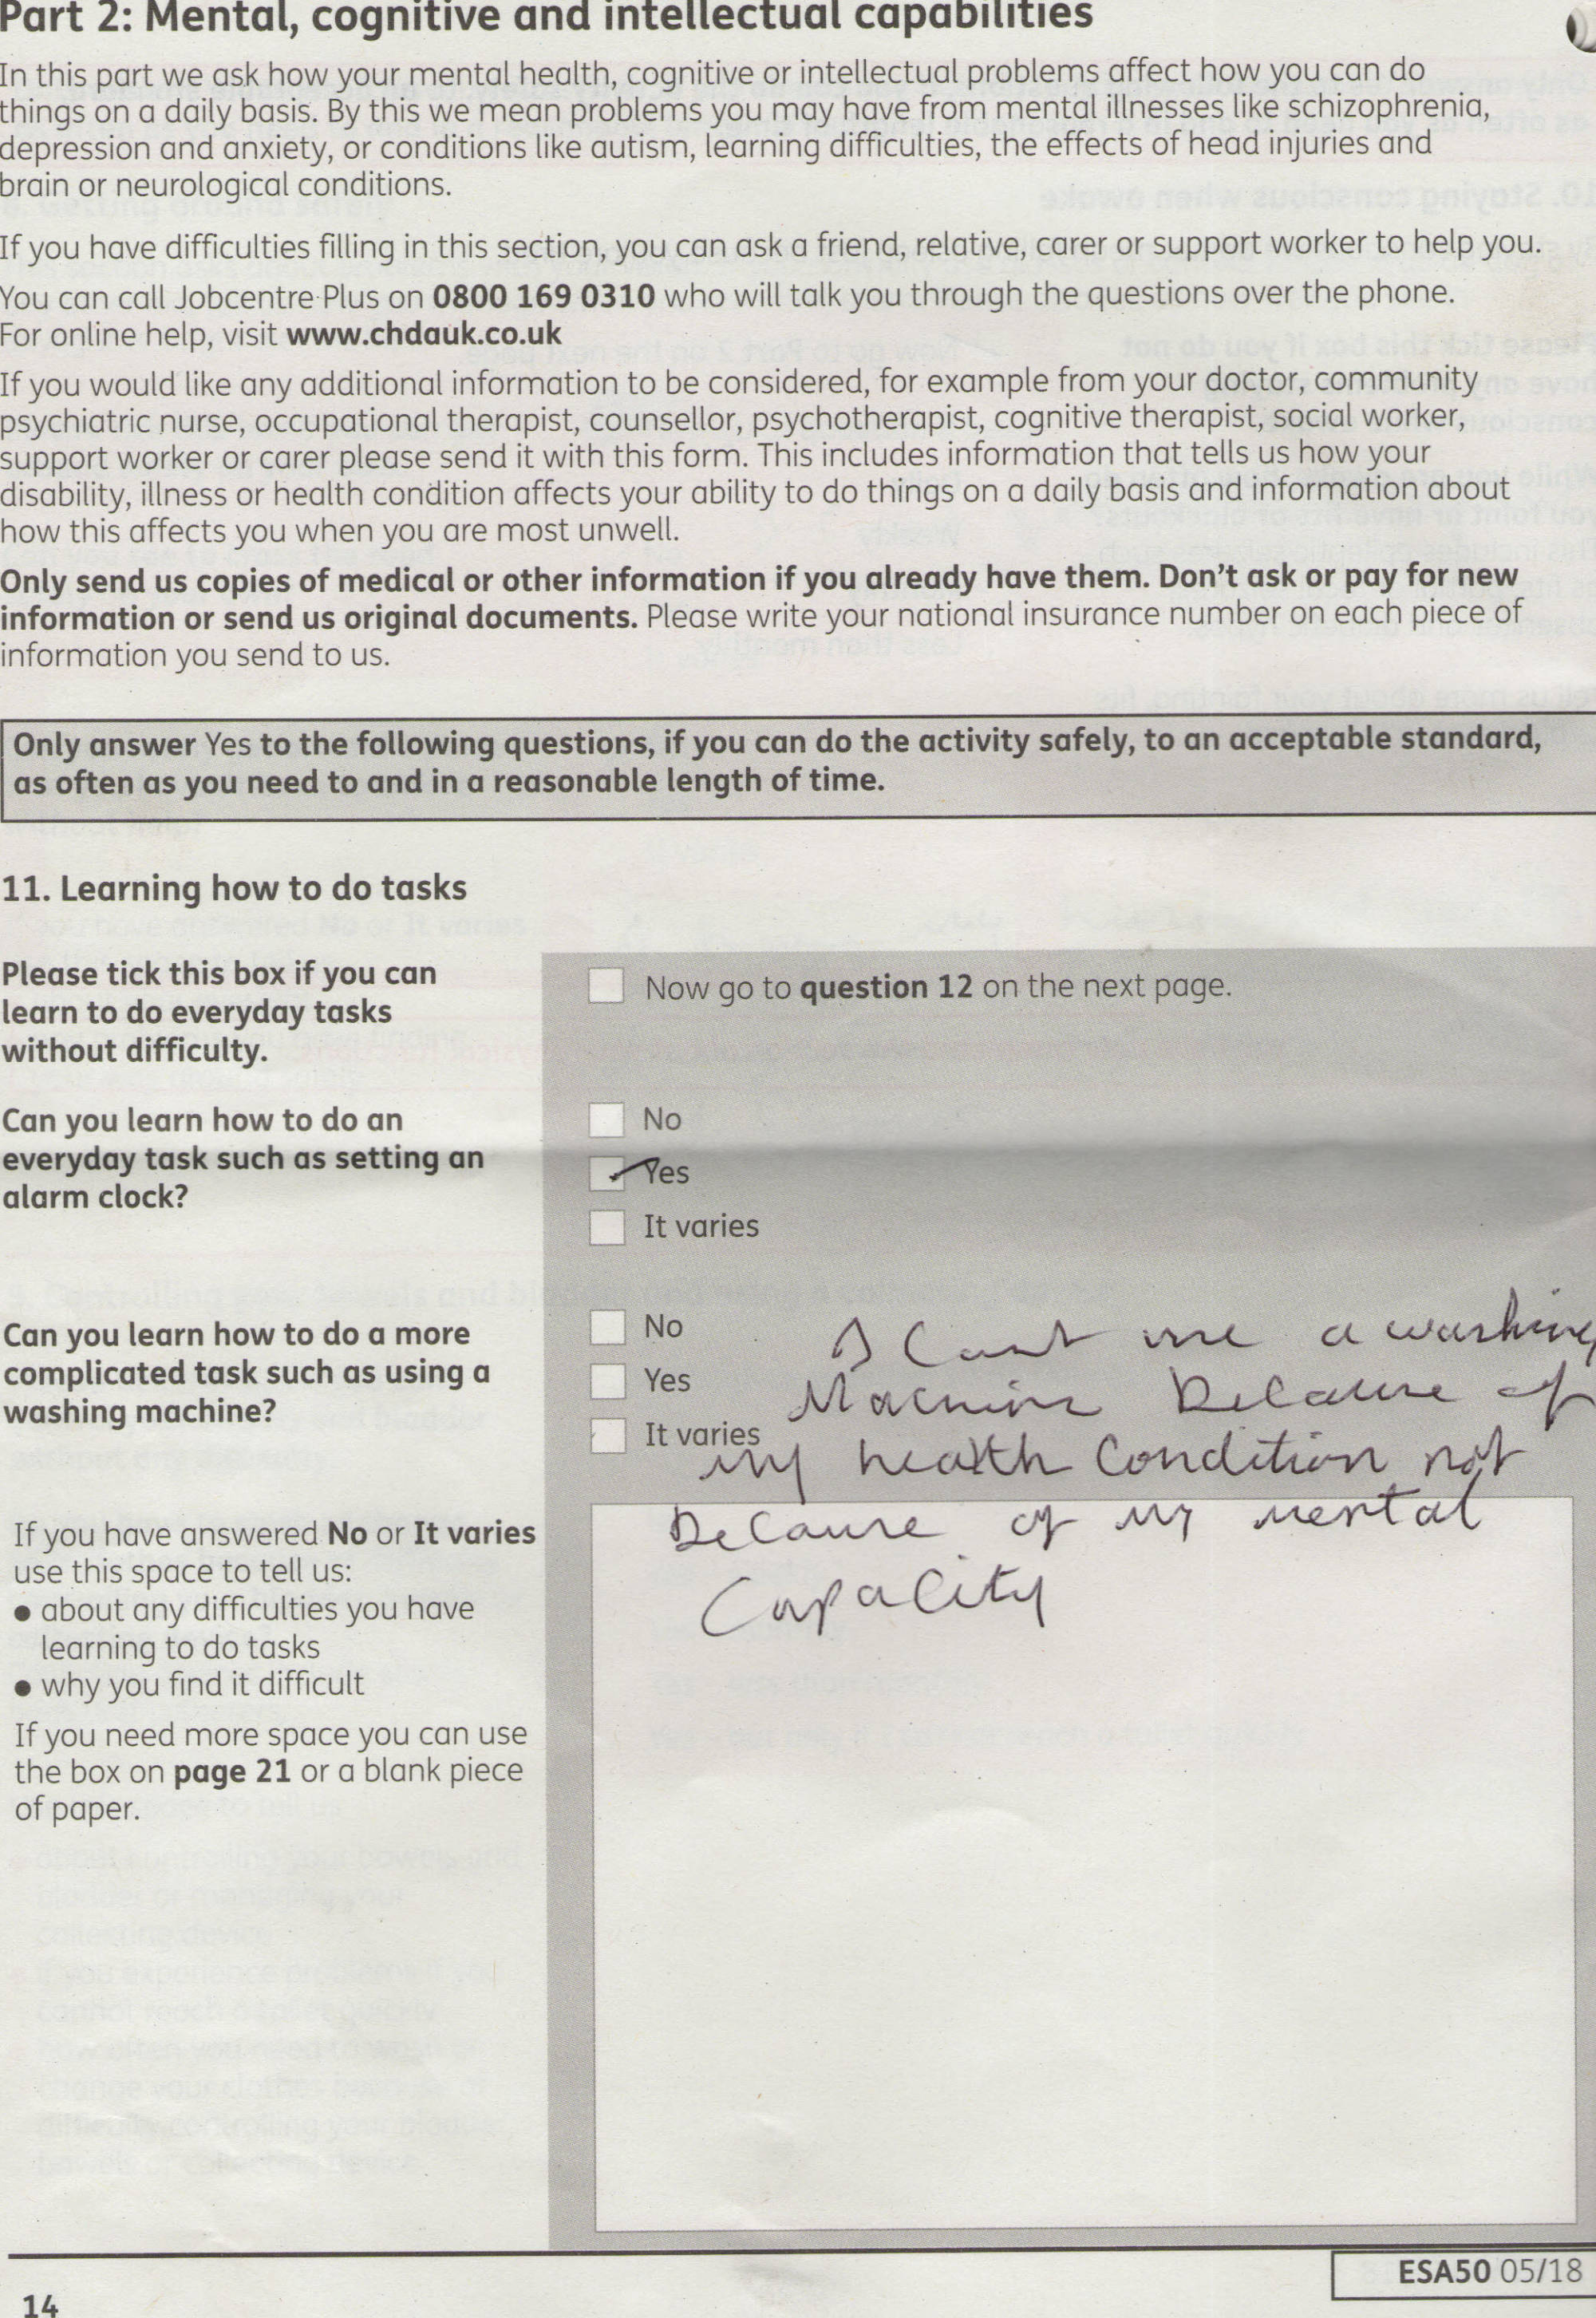 Part 2: Mental, cognitive and intellectual capabilities
In this part we ask how your mental health, cognitive or intellectual problems affect how you can do
things on a daily basis. By this we mean problems you may have from mental illnesses like schizophrenia,
depression and anxiety, or conditions like autism, learning difficulties, the effects of head injuries and
brain or neurological conditions.
If you have difficulties filling in this section, you can ask a friend, relative, carer or support worker to help you.
You can call Jobcentre Plus on 0800 169 0310 who will talk you through the questions over the phone.
For online help, visit www.chdauk.co.uk
If you would like any additional information to be considered, for example from your doctor, community
psychiatric nurse, occupational therapist, counsellor, psychotherapist, cognitive therapist, social worker,
support worker or carer please send it with this form. This includes information that tells us how your
disability, illness or health condition affects your ability to do things on a daily basis and information about
how this affects you when you are most unwell.
Only send us copies of medical or other information if you already have them. Don't ask or pay for new
information or send us original documents. Please write your national insurance number on each piece of
information you send to us.
Only answer Yes to the following questions, if you can do the activity safely, to an acceptable standard,
as often as you need to and in a reasonable length of time.
11. Learning how to do tasks
Please tick this box if you can
learn to do everyday tasks
without difficulty.
Now go to question 12 on the next page.
Can you learn how to do an
everyday task such as setting an
alarm clock?
No
Yes
It varies
Can you learn how to do a more
complicated task such as using a
washing machine?
No
Yes
It varies
I Cant use a washing
Machine Because of
my health Condition not
Because of my mental
Capacity
If you have answered No or It varies
use this space to tell us:
• about any difficulties you have
learning to do tasks
• why you find it difficult
If you need more space you can use
the box on page 21 or a blank piece
of paper.
14
ESA50 05/18